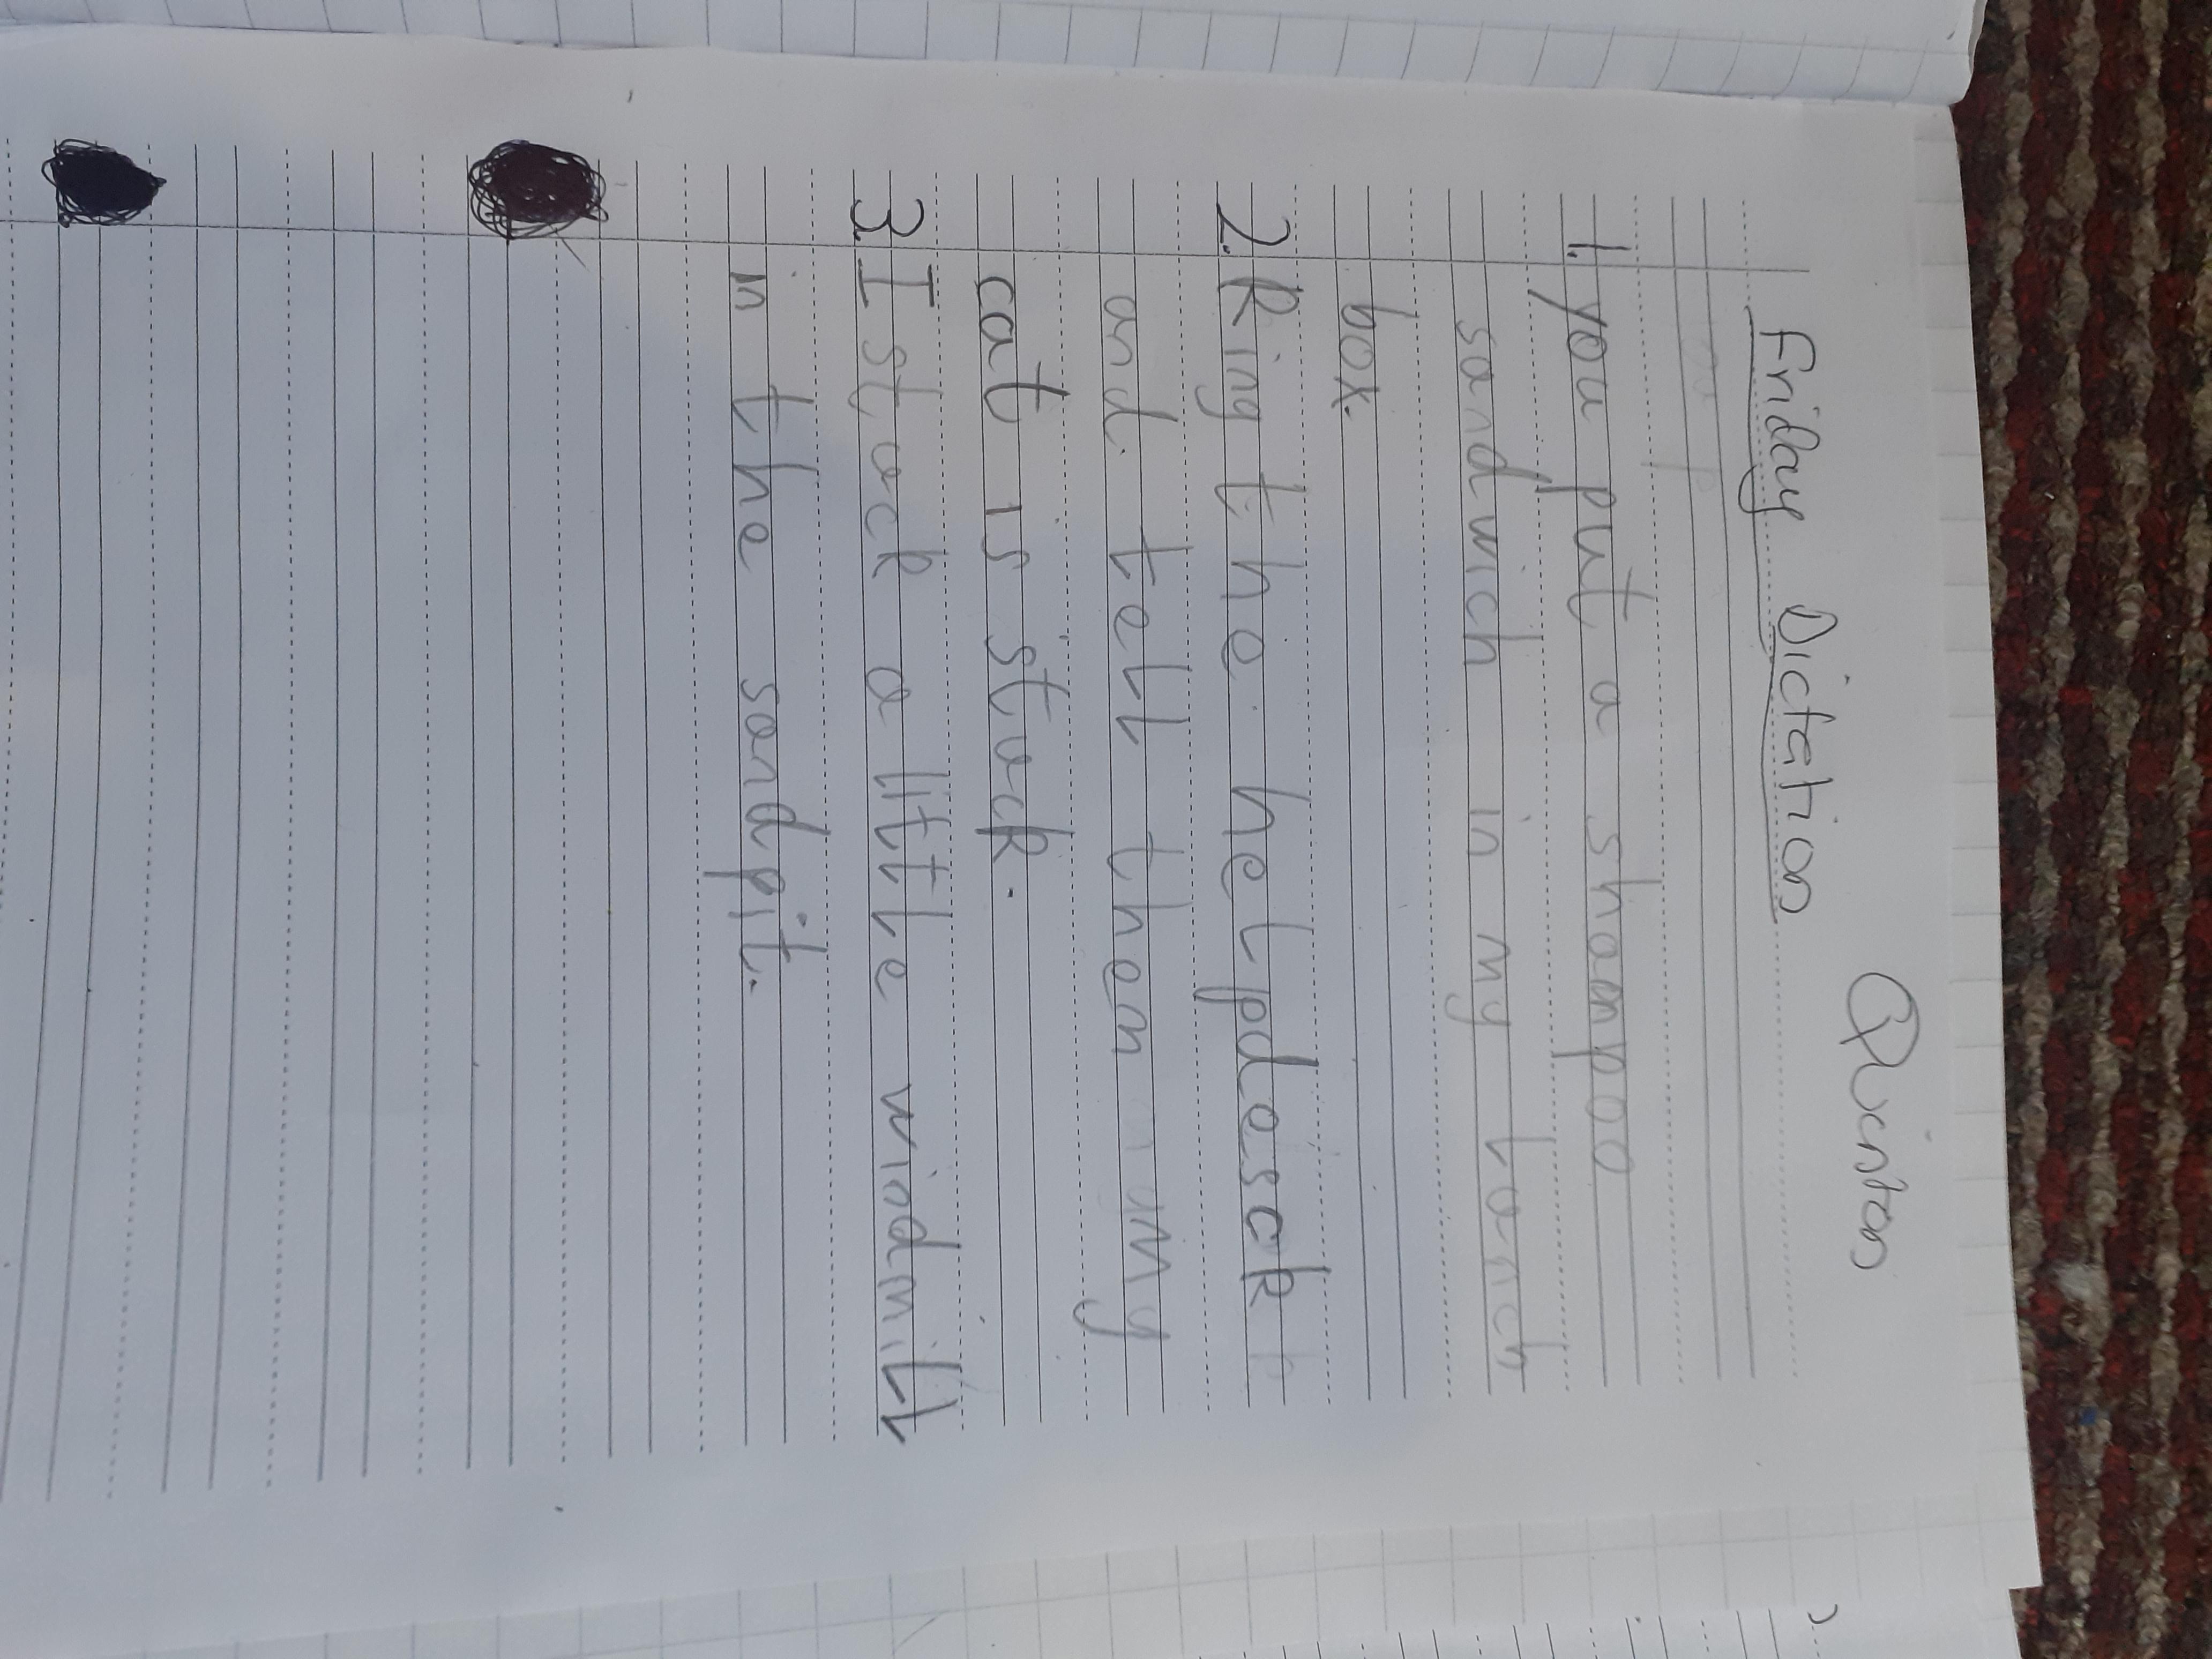 Quinton
Friday Dictation
1. you put a shampoo
sandwich in my lunch
box.
2. Ring the helpdesck
and tell them my
cat is stuck.
3. I stuck a little windmill
in the sandpit.